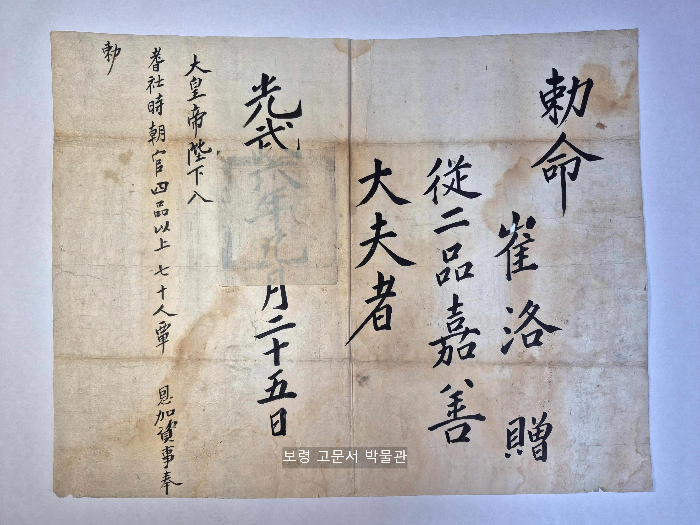 勅命
崔洛 贈
從二品嘉善
大夫者
光武六年九月二十五日
大皇帝陛下入
耆社時朝官四品以上七十人覃 恩加資事奉
勅
보령 고문서 박물관